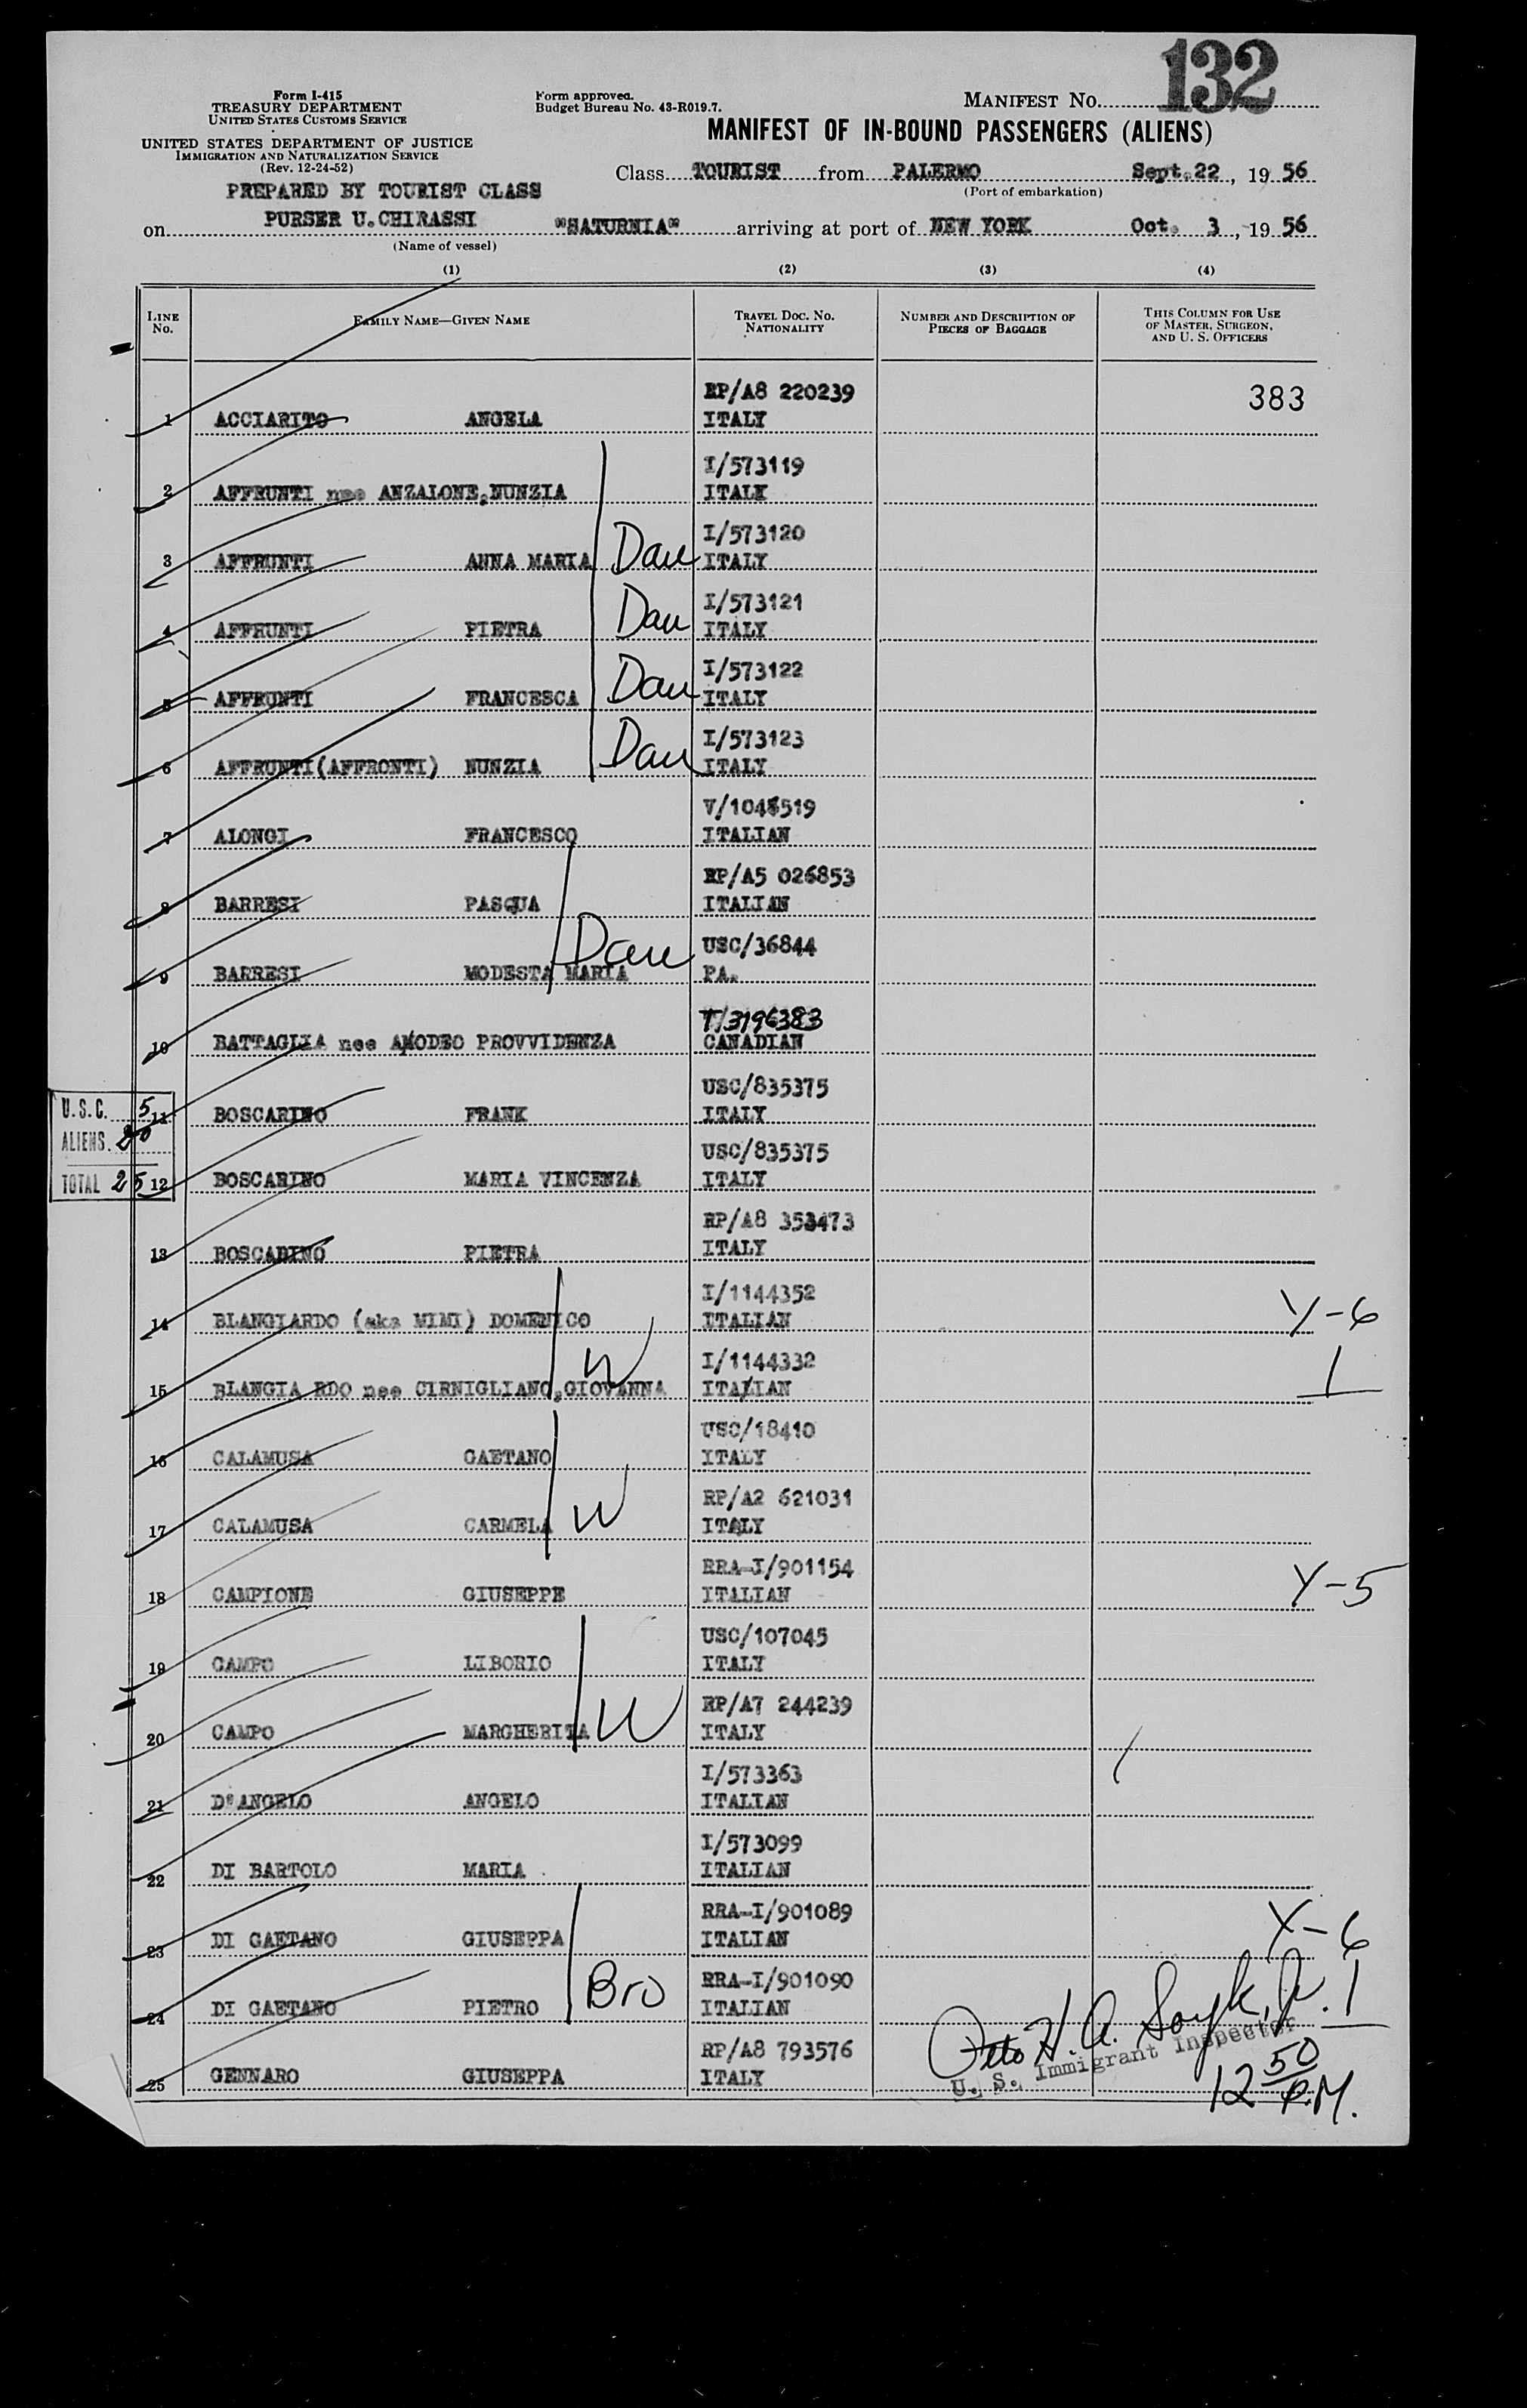 132
Form I-415
TREASURY DEPARTMENT
UNITED STATES CUSTOMS SERVICE
UNITED STATES DEPARTMENT OF JUSTICE
IMMIGRATION AND NATURALIZATION SERVICE
(Rev. 12-24-52)
Form approved.
Budget Bureau No. 43-R019.7.
MANIFEST No.
MANIFEST OF IN-BOUND PASSENGERS (ALIENS)
Class TOURIST from PALERMO Sept. 22, 19 56
(Port of embarkation)
PREPARED BY TOURIST CLASS
PURSER U. CHIRASSI
on "SATURNIA" arriving at port of NEW YORK Oct. 3, 19 56
(Name of vessel)
(1) (2) (3) (4)
LINE No. FAMILY NAME—GIVEN NAME TRAVEL DOC. No. NATIONALITY NUMBER AND DESCRIPTION OF PIECES OF BAGGAGE THIS COLUMN FOR USE OF MASTER, SURGEON, AND U. S. OFFICERS
RP/A8 220239 383
1 ACCIARITO ANGELA ITALY
I/573119
2 AFFRUNTI nee ANZALONE, NUNZIA ITALY
I/573120
3 AFFRUNTI ANNA MARIA Dau ITALY
I/573121
4 AFFRUNTI PIETRA Dau ITALY
I/573122
5 AFFRUNTI FRANCESCA Dau ITALY
I/573123
6 AFFRUNTI (AFFRONTI) NUNZIA Dau ITALY
7 ALONGI FRANCESCO ITALIAN
RP/A5 026853
8 BARRESI PASQUA ITALIAN
USC/36844
9 BARRESI MODESTA MARIA Dau PA.
T/3196383
10 BATTAGLIA nee AMODEO PROVVIDENZA CANADIAN
USC/835375
11 BOSCARINO FRANK ITALY
USC/835375
12 BOSCARINO MARIA VINCENZA ITALY
RP/A8 353473
13 BOSCARINO PIETRA ITALY
I/1144352
14 BLANGIARDO (aka MIMI) DOMENICO ITALIAN Y-6
I/1144332
15 BLANGIA RDO nee CIRNIGLIANO, GIOVANNA W ITALIAN 1
USC/18410
16 CALAMUSA GAETANO ITALY
RP/A2 621031
17 CALAMUSA CARMELA W ITALY
RRA-I/901154
18 CAMPIONE GIUSEPPE ITALIAN Y-5
USC/107045
19 CAMPO LIBORIO ITALY
RP/A7 244239
20 CAMPO MARGHERITA W ITALY
I/573363
21 D'ANGELO ANGELO ITALIAN
I/573099
22 DI BARTOLO MARIA ITALIAN
RRA-I/901089
23 DI GAETANO GIUSEPPA ITALIAN Y-6
RRA-I/901090
24 DI GAETANO PIETRO Bro ITALIAN 1
RP/A8 793576
25 GENNARO GIUSEPPA ITALY
U.S.C. 5
ALIENS. 20
TOTAL 25
Otto H. A. Soyk, Jr.
U. S. Immigrant Inspector
12 50 P.M.